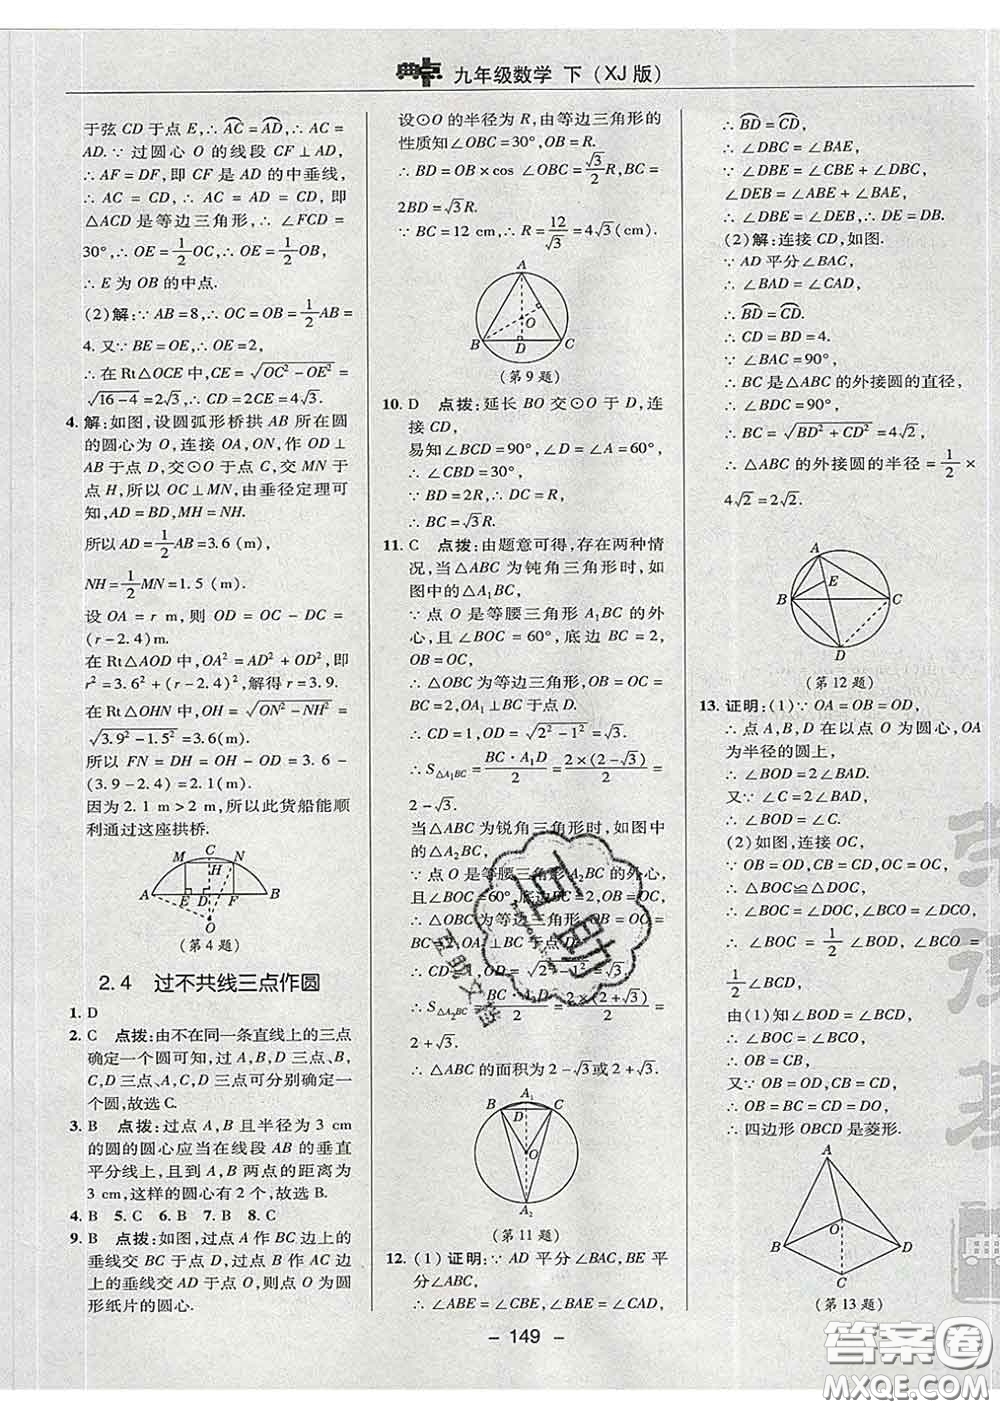 典点 九年级数学 下（XJ版）
于弦 CD 于点 E,∴ AC=AD,∴ AC=
AD.∵ 过圆心 O 的线段 CF⊥AD,
∴ AF=DF,即 CF 是 AD 的中垂线,
∴ AC = CD,∴ AC = AD = CD,即
△ACD 是等边三角形,∴ ∠FCD =
30°,∴ OE=1/2OC,∴ OE=1/2OB,
∴ E 为 OB 的中点.
(2)解:∵ AB=8,∴ OC=OB=1/2AB=
4.又∵ BE=OE,∴ OE=2,
∴ 在 Rt△OCE 中,CE=√(OC²-OE²)=
√(16-4)=2√3,∴ CD=2CE=4√3.
4. 解:如图,设圆弧形桥拱 AB 所在圆
的圆心为 O,连接 OA,ON,作 OD⊥
AB 于点 D,交⊙O 于点 C,交 MN 于
点 H,所以 OC⊥MN,由垂径定理可
知,AD=BD,MH=NH.
所以 AD=1/2AB=3.6(m),
NH=1/2MN=1.5 (m).
设 OA = r m,则 OD = OC - DC =
(r-2.4)m.
在 Rt△AOD 中,OA²=AD²+OD²,即
r²=3.6²+(r-2.4)²,解得 r=3.9.
在 Rt△OHN 中,OH=√(ON²-NH²)=
√(3.9²-1.5²)=3.6(m).
所以 FN = DH = OH - OD = 3.6 -
(3.9-2.4)=2.1(m).
因为 2.1 m>2 m,所以此货船能顺
利通过这座拱桥.
C
M H N
A E D F B
O
(第 4 题)
2.4 过不共线三点作圆
1. D
2. C 点拨:由不在同一条直线上的三点
确定一个圆可知,过 A,B,D 三点、B,
C,D 三点可分别确定一
个圆,故选 C.
3. B 点拨:过点 A,B 且半径为 3 cm
的圆的圆心应当在线段 AB 的垂直
平分线上,且到 A,B 两点的距离为
3 cm,这样的圆心有 2 个,故选 B.
4. B 5. C 6. B 7. B 8. C
9. B 点拨:如图,过点 A 作 BC 边上的
垂线交 BC 于点 D,过点 B 作 AC 边
上的垂线交 AD 于点 O,则点 O 为圆
形纸片的圆心.
设⊙O 的半径为 R,由等边三角形的
性质知∠OBC=30°,OB=R.
∴ BD=OB×cos ∠OBC=√3/2R,BC=
2BD=√3R.
∵ BC=12 cm,∴ R=12/√3=4√3(cm).
A
O
B D C
(第 9 题)
10. D 点拨:延长 BO 交⊙O 于 D,连
接 CD,
易知∠BCD=90°,∠D=∠A=60°,
∴ ∠CBD=30°.
∵ BD=2R,∴ DC=R,
∴ BC=√3R.
11. C 点拨:由题意可得,存在两种情
况,当△ABC 为钝角三角形时,如
图中的△A₁BC,
∵ 点 O 是等腰三角形 A₁BC 的外
心,且∠BOC = 60°,底边 BC = 2,
OB=OC,
∴ △OBC 为等边三角形,OB=OC=
BC=2,OA₁⊥BC 于点 D.
∴ CD=1,OD=√(2²-1²)=√3.
∴ S△A₁BC=BC·A₁D/2=2×(2-√3)/2=
2-√3.
当△ABC 为锐角三角形时,如图中
的△A₂BC,
∵ 点 O 是等腰三角形 A₂BC 的外心,
且∠BOC=60°,底边 BC=2,OB=OC,
∴ △OBC 为等边三角形,OB=OC=
2+√3.
∴ △ABC 的面积为 2-√3或 2+√3.
A₁
B D C
O
A₂
(第 11 题)
12. (1) 证明:∵ AD 平分∠BAC,BE 平
分∠ABC,
∴ ∠ABE=∠CBE,∠BAE=∠CAD,
∴ BD=CD,
∴ ∠DBC=∠BAE,
∵ ∠DBE = ∠CBE + ∠DBC,
∠DEB=∠ABE+∠BAE,
∴ ∠DBE=∠DEB,∴ DE=DB.
(2)解:连接 CD,如图.
∵ AD 平分∠BAC,
∴ ∠BAD=∠CAD,
∴ BD=CD.
∴ CD=BD=4.
∵ ∠BAC=90°,
∴ BC 是△ABC 的外接圆的直径,
∴ ∠BDC=90°,
∴ BC=√(BD²+CD²)=4√2,
∴ △ABC 的外接圆的半径=1/2×
4√2=2√2.
A
E
B C
D
(第 12 题)
13. 证明:(1)∵ OA=OB=OD,
∴ 点 A,B,D 在以点 O 为圆心,OA
为半径的圆上,
∴ ∠BOD=2∠BAD.
又∵ ∠C=2∠BAD,
∴ ∠BOD=∠C.
(2)如图,连接 OC,
∵ OB=OD,CB=CD,OC=OC,
∴ △BOC≌△DOC,
∴ ∠BOC=∠DOC,∠BCO=∠DCO,
∴ ∠BOC = 1/2 ∠BOD,∠BCO =
1/2∠BCD,
由(1)知∠BOD=∠BCD,
∴ ∠BOC=∠BCO,
∴ OB=CB,
又∵ OB=OD,CB=CD,
∴ OB=BC=CD=DO,
∴ 四边形 OBCD 是菱形.
A
B O D
C
(第 13 题)
- 149 -
互助
互助文档
答案圈
MXQE.COM